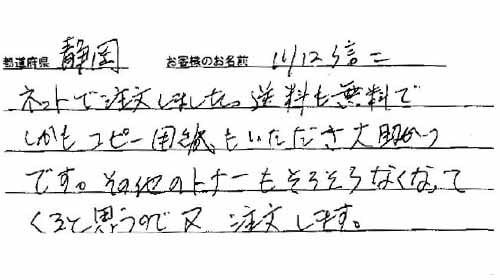 都道府県 静岡 お客様のお名前 川口信二
ネットで注文しました。送料も無料で
しかもコピー用紙もいただき大助かり
です。その他のトナーもそろそろなくなって
くると思うので又注文します。